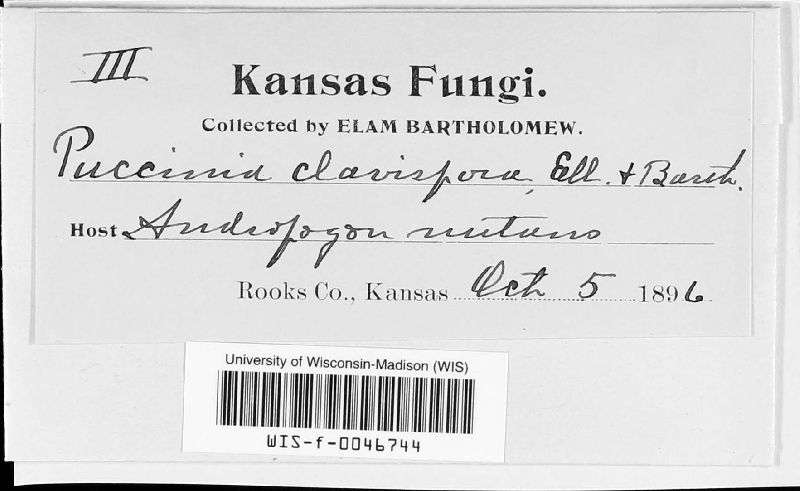 III
Kansas Fungi.
Collected by ELAM BARTHOLOMEW.
Puccinia clavispora, Ell. & Barth.
Host Andropogon nutans
Rooks Co., Kansas Oct 5 1896
University of Wisconsin-Madison (WIS)
WIS-f-0046744